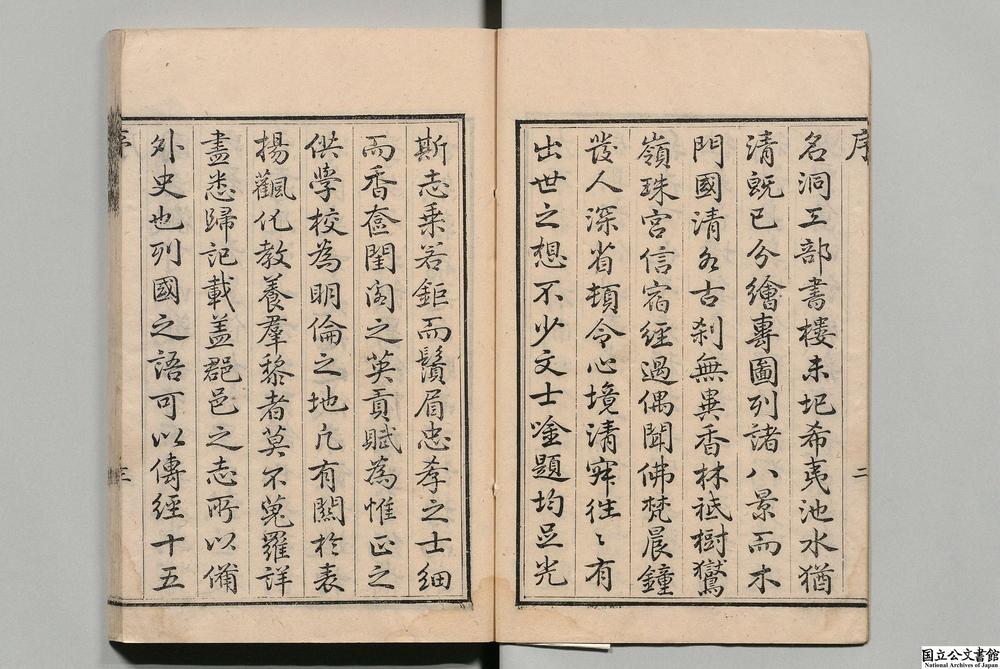 序
二
名洞工部書樓未圮希夷池水猶
清旣已分繪專圖列諸八景而木
門國清名古刹無異香林祗樹鷲
嶺珠宮信宿經過偶聞佛梵晨鐘
發人深省頓令心境清寧往〻有
出世之想不少文士唫題均足光
斯志乘若鉅而鬚眉忠孝之士細
而香奩閨閣之英貢賦為惟正之
供學校為明倫之地凡有關於表
揚觀化教養羣黎者莫不蒐羅詳
盡悉歸記載蓋郡邑之志所以備
外史也列國之語可以傳經十五
序
三
国立公文書館
National Archives of Japan